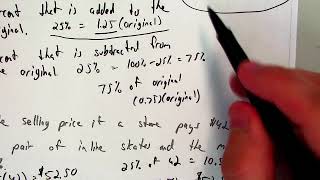 cent that is added to the
ginal. 25% = 1.25 (original)
cent that is subtracted from
e original 25% = 100% - 25% = 75%
75% of original
(0.75)(original)
selling price if a store pays $42
pair of inline skates and the m
25% of 42 = 10.5
$52.50